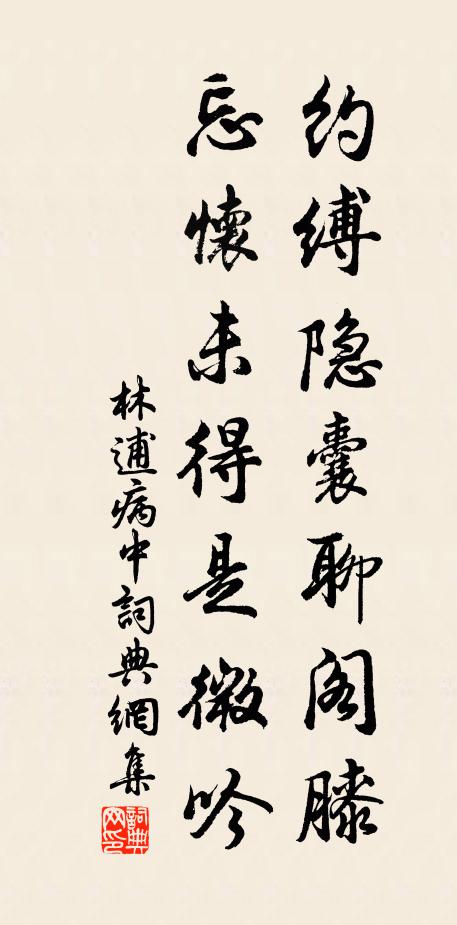 約縛隐囊聊阁膝
忘懷未得是微吟
林逋病中詞典網集
詞典网印